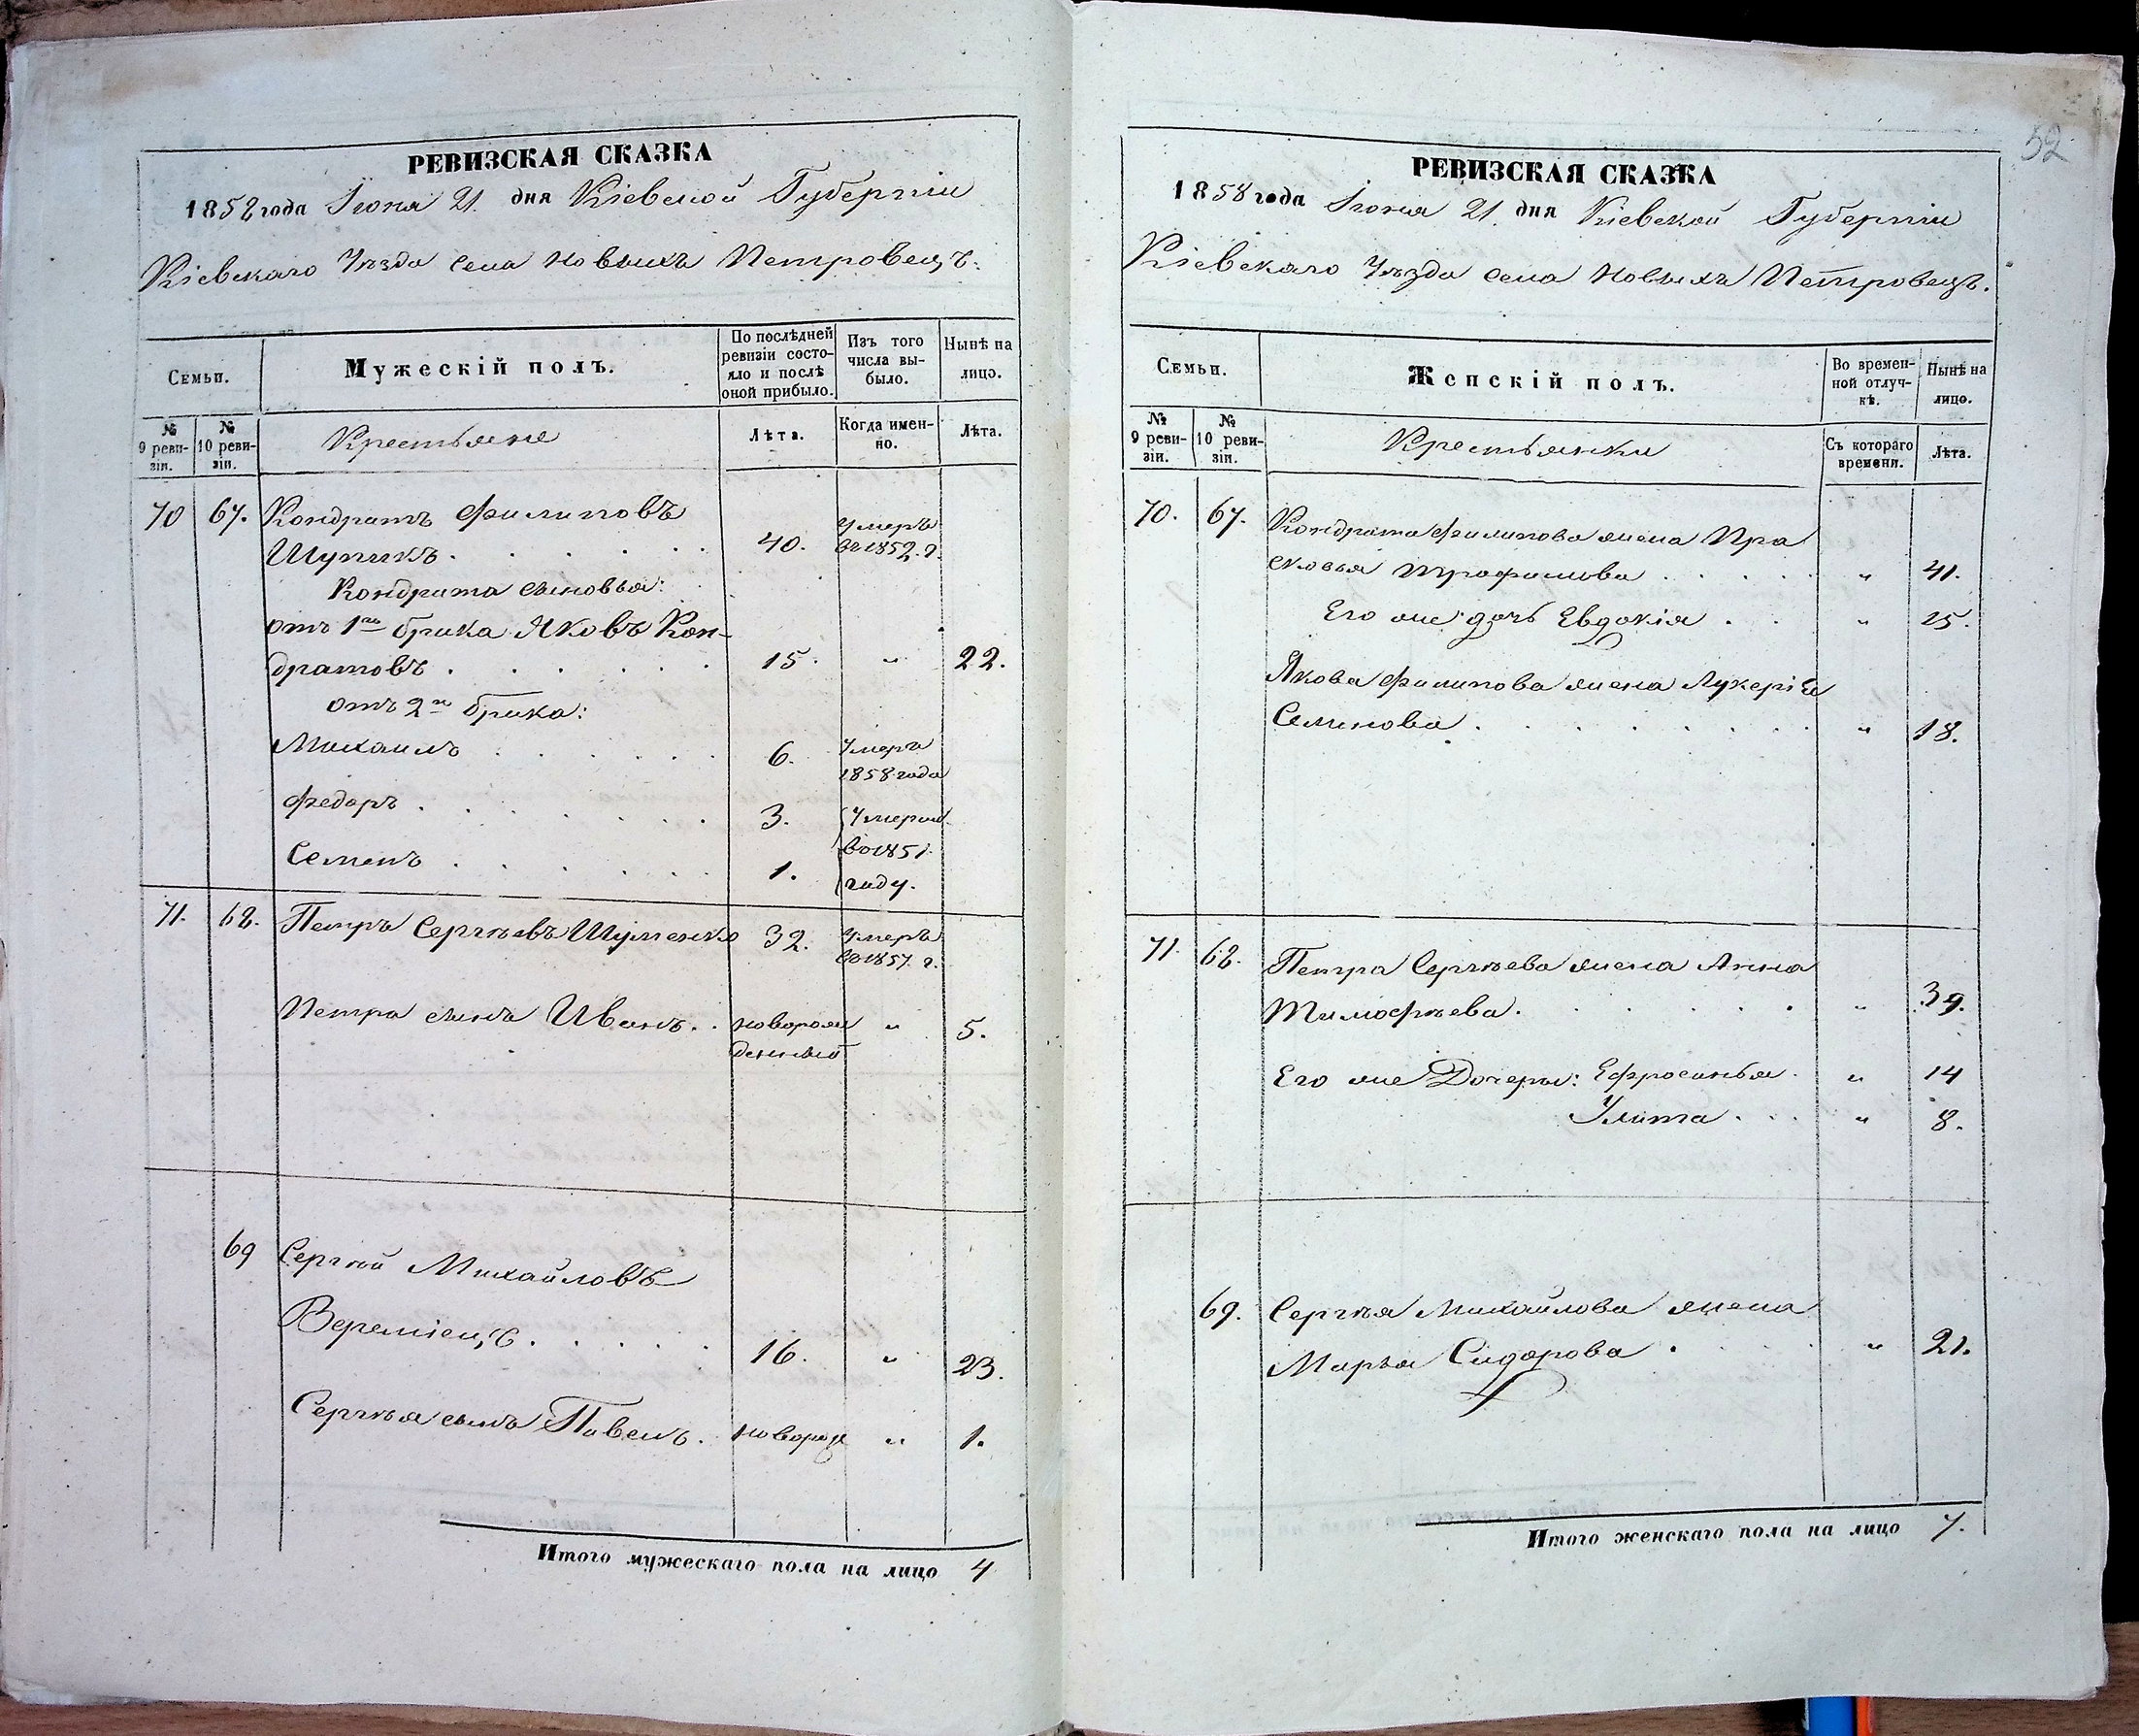 РЕВИЗСКАЯ СКАЗКА
1858 года Іюня 21. дня Кіевской Губерніи
Кіевскаго Уѣзда села Новыхъ Петровецъ.
Семьи.
Мужескій полъ.
По послѣдней ревизіи состояло и послѣ оной прибыло.
Изъ того числа выбыло.
Нынѣ на лицо.
№ 9 ревизіи.
№ 10 ревизіи.
Крестьяне
Лѣта.
Когда именно.
Лѣта.
70 67. Кондратъ Филиповъ
Шупикъ . . . . . . 40. Умеръ въ 1852. г.
Кондрата сыновья:
отъ 1го брака Яковъ Кон-
дратовъ . . . . . . 15. " 22.
отъ 2го брака:
Михаилъ . . . . . 6. Умеръ 1858 года
Федоръ . . . . . . 3. Умерли
Семенъ . . . . . . 1. въ 1851. году.
71. 68. Петръ Сергѣевъ Шуменко 32. Умеръ въ 1857. г.
Петра сынъ Иванъ . . новорож " 5.
денный
69 Сергѣй Михайловъ
Веремiецъ . . . . . 16. " 23.
Сергѣя сынъ Павелъ. новорож " 1.
Итого мужескаго пола на лицо 4
52
РЕВИЗСКАЯ СКАЗКА
1858 года Іюня 21. дня Кіевской Губерніи
Кіевскаго Уѣзда села Новыхъ Петровецъ.
Семьи.
Женскій полъ.
Во временной отлучкѣ.
Нынѣ на лицо.
№ 9 ревизіи.
№ 10 ревизіи.
Крестьянки
Съ котораго времени.
Лѣта.
70. 67. Кондрата Филипова жена Пра
сковья Трофимова . . . . . " 41.
Его же дочь Евдокія . . " 15.
Якова Филипова жена Лукерія
Семенова . . . . . . . " 18.
71. 68. Петра Сергѣева жена Анна
Тимофѣева . . . . . . " 39.
Его же Дочери: Ефросинья . " 14
Улита . . . " 8.
69. Сергѣя Михайлова жена
Марья Сидорова . . . . " 21.
Итого женскаго пола на лицо 7.